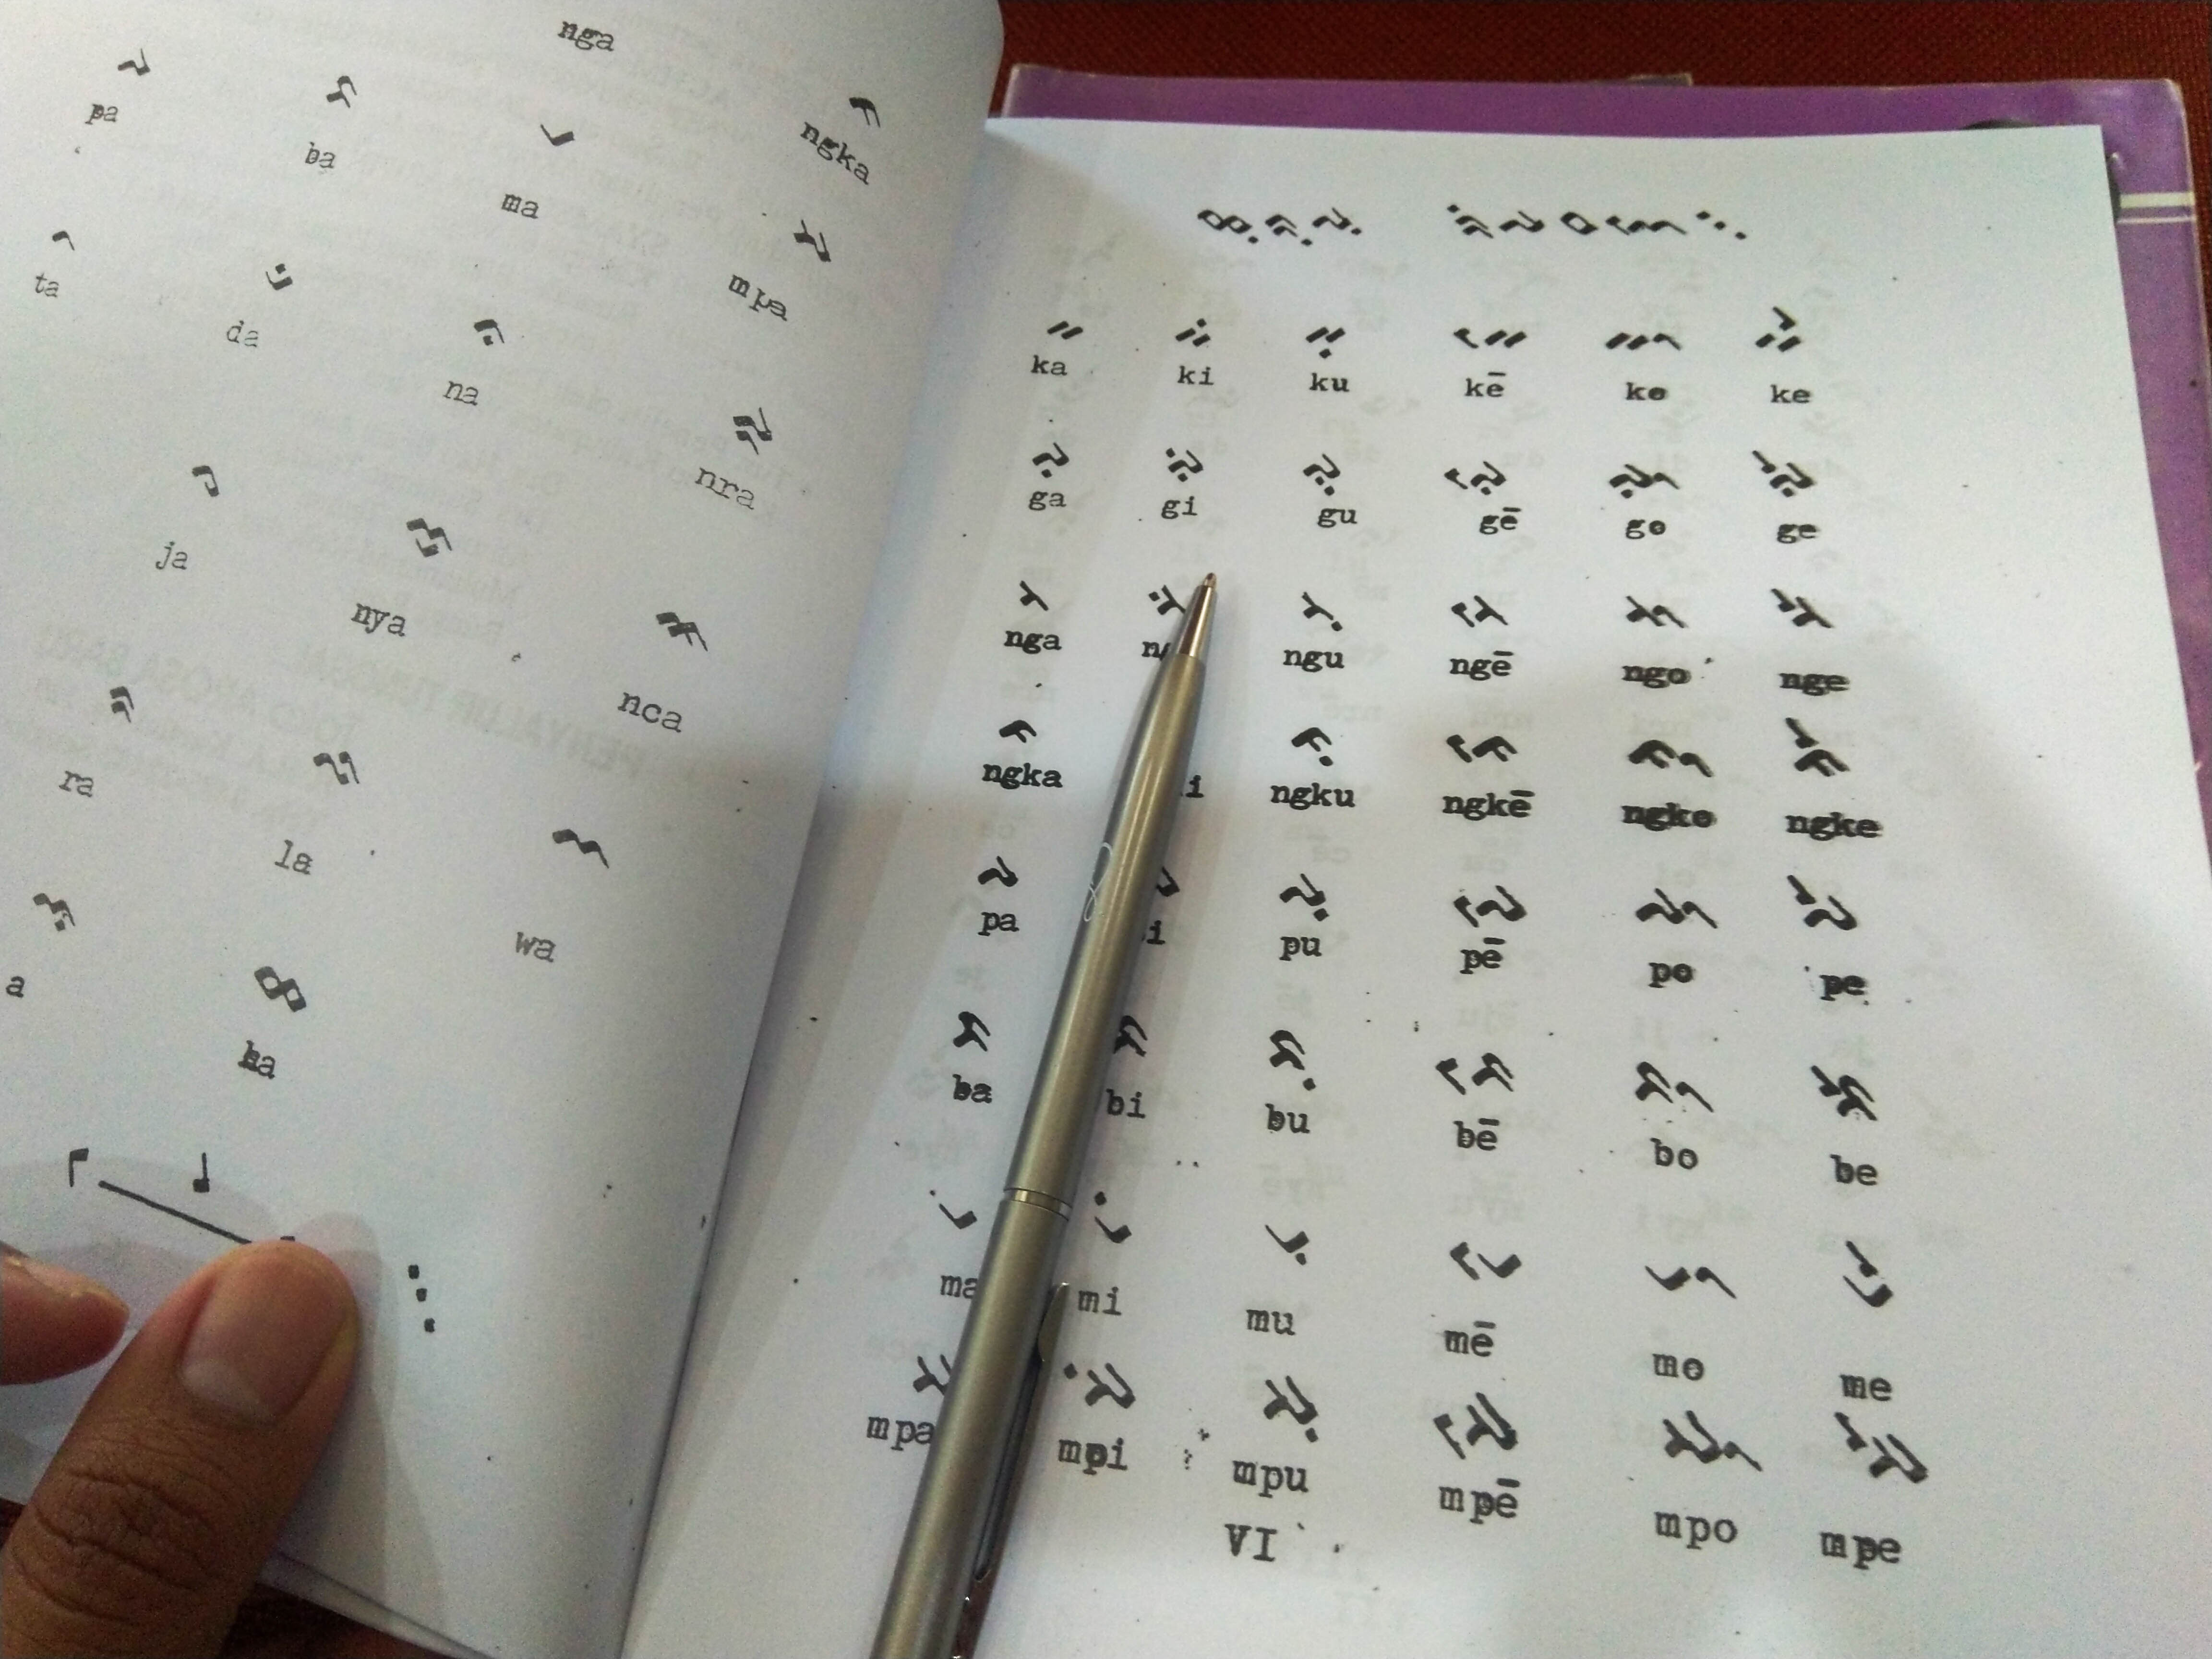 nga
ᨃ
ngka
ᨄ ᨅ ᨆ ᨇ
pa ba ma mpa
ᨈ ᨉ ᨊ ᨋ
ta da na nra
ᨍ ᨎ ᨏ
ja nya nca
ᨑ ᨒ ᨓ
ra la wa
ᨕ ᨖ
a ha
ᨖᨘᨑᨘᨄᨘ ᨑᨗᨄᨔᨙᨓ᨞
ᨀ ᨀᨗ ᨀᨘ ᨀᨙ ᨀᨚ ᨀᨛ
ka ki ku kē ko ke
ᨁ ᨁᨗ ᨁᨘ ᨁᨙ ᨁᨚ ᨁᨛ
ga gi gu gē go ge
ᨂ ᨂᨗ ᨂᨘ ᨂᨙ ᨂᨚ ᨂᨛ
nga ngu ngē ngo nge
ᨃ ᨃᨘ ᨃᨙ ᨃᨚ ᨃᨛ
ngka ngku ngkē ngko ngke
ᨄ ᨄᨘ ᨄᨙ ᨄᨚ ᨄᨛ
pa pu pē po pe
ᨅ ᨅᨗ ᨅᨘ ᨅᨙ ᨅᨚ ᨅᨛ
ba bi bu bē bo be
ᨆ ᨆᨗ ᨆᨘ ᨆᨙ ᨆᨚ ᨆᨛ
ma mi mu mē mo me
ᨇ ᨇᨗ ᨇᨘ ᨇᨙ ᨇᨚ ᨇᨛ
mpa mpi mpu mpē mpo mpe
VI